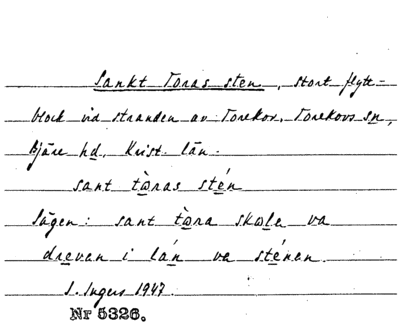 Sankt Toras sten, stort flytt-
block vid stranden av Torekov, Torekovs sn,
Bjäre hd, Krist. län.
sant tὼras stén
Sägen: sant tὼra skωle va
dreven i lán va sténen.
I. Ingers 1947.
Nr 5326.